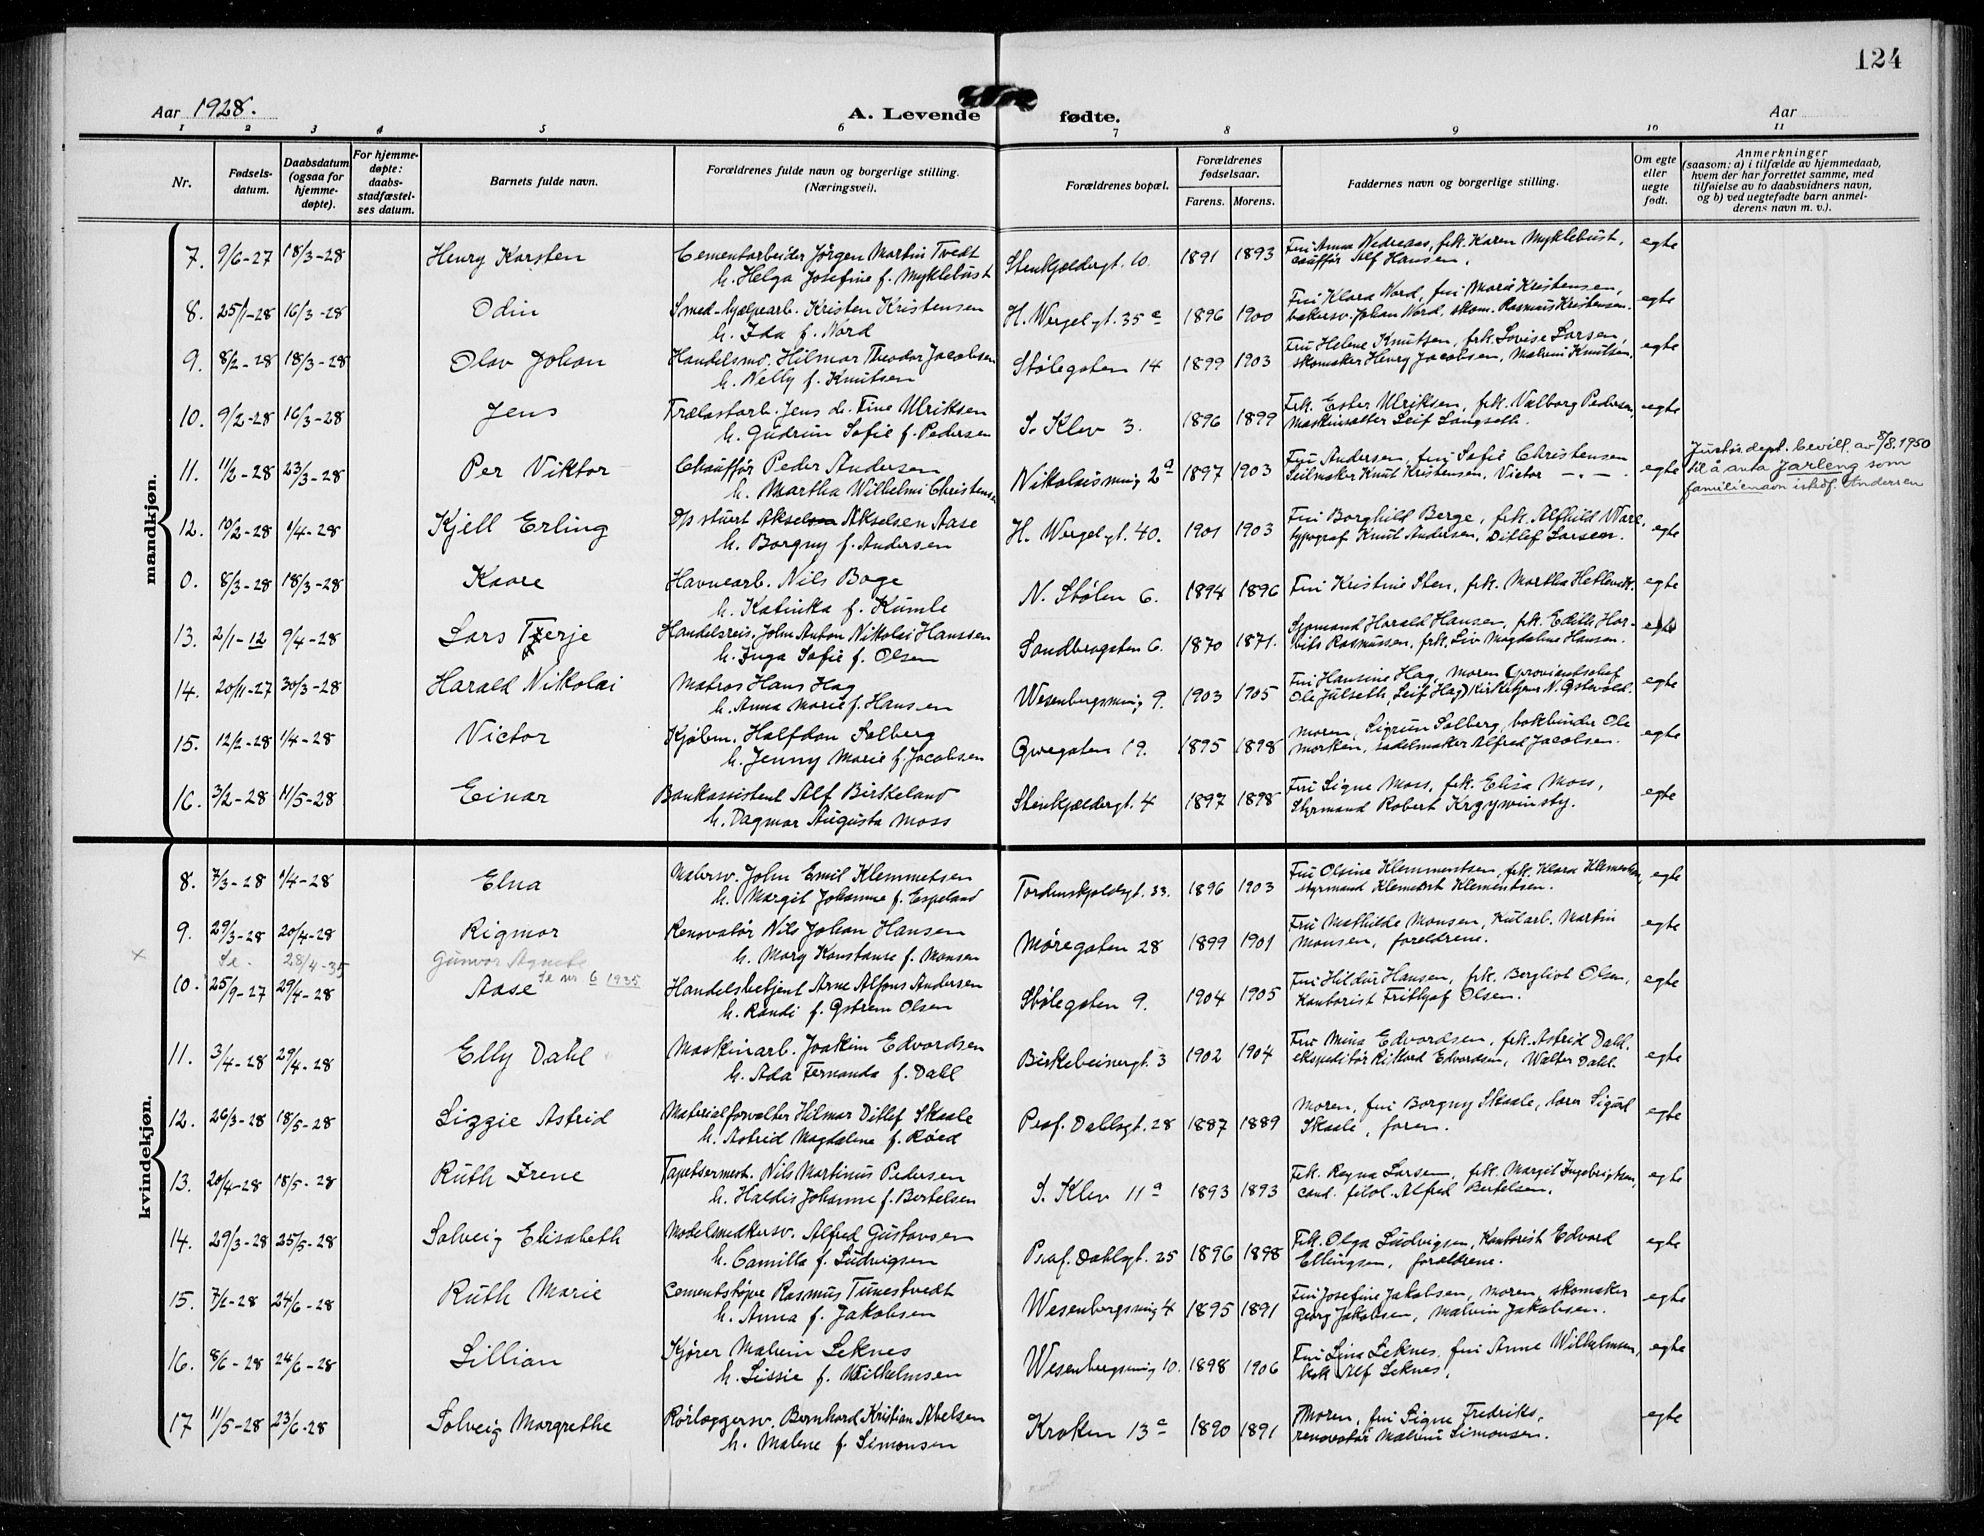 124
Aar 1928.
A. Levende fødte.
Aar
1 2 3 4 5 6 7 8 9 10 11
Nr.
Fødsels-datum.
Daabsdatum (ogsaa for hjemme-døpte).
For hjemme-døpte: daabs-stadfæstel-ses datum.
Barnets fulde navn.
Forældrenes fulde navn og borgerlige stilling. (Næringsvei).
Forældrenes bopæl.
Forældrenes fødselsaar.
Farens. Morens.
Faddernes navn og borgerlige stilling.
Om egte eller uegte født.
Anmerkninger (saasom: a) i tilfælde av hjemmedaab, hvem der har forrettet samme, med tilføielse av to daabsvidners navn, og b) ved uegtefødte barn anmel-derens navn m. v.).
mandkjøn.
7. 9/6-27 18/3-28 Henry Karsten Cementarbeider Jørgen Martin Tvedt Stenkjeldergt. 10. 1891 1893 Fru Anna Nedreaas, frk. Karen Myklebust, egte
h. Helga Josefine f. Myklebust chauffør Alf Hansen.
8. 25/1-28 16/3-28 Odin Smed-hjælpearb. Kristen Kristensen H. Wergel.gt. 35 c 1896 1900 Fru Klara Nord, fru Marie Kristensen, egte
h. Ida f. Nord bakersv. Johan Nord, skom. Rasmus Kristensen.
9. 8/2-28 18/3-28 Olav Johan Handelsmd. Hilmar Theodor Jacobsen Stølegaten 14 1899 1903 Fru Helene Knutsen, frk. Lovise Larsen, egte
h. Nelly f. Knutsen skomaker Henry Jacobsen, Malvin Knutsen.
10. 9/2-28 16/3-28 Jens Trælastarb. Jens d. Fine Ulriksen S. Klev 3. 1896 1899 Frk. Ester Ulriksen, frk. Valborg Pedersen, egte
h. Gudrun Sofie f. Pedersen Maskinsætter Leif Langseth.
11. 11/2-28 23/3-28 Per Viktor Chauffør Peder Andersen Nikolaismug 2 a 1897 1903 Fru Andersen, fru Sofie Christensen egte Justisdept. bevill. av 8/8.1950
h. Martha Wilhelmi Christensen Seilmaker Knut Kristensen, Victor - " - til å anta Jarleng som
familienavn istdf. Andersen
12. 10/2-28 1/4-28 Kjell Erling D/s stuert Akselsen Akselsen Aase H. Wergel.gt. 40. 1901 1903 Fru Borghild Berge, frk. Alfhild Warl. egte
h. Borgny f. Andersen typograf Knut Andersen, Ditlef Larsen.
0. 8/3-28 18/3-28 Kaare Havnearb. Nils Boge N. Stølen 6. 1894 1896 Fru Kristine Sten, frk. Martha Hetlevik. egte
h. Katinka f. Kumle
13. 2/1-12 9/4-28 Lars Terje Handelsreis. John Anton Nikolai Hanssen Sandbrogaten 6. 1870 1871. Sjømand Harald Hansen, frk. Edith Har- egte
h. Inga Sofie f. Olsen Rasmussen, frk. Liv Magdalene Hansen.
14. 20/11-27 30/3-28 Harald Nikolai Matros Hans Hag Wesenbergsmug 9. 1903 1905 Fru Hansine Hag, moren (proviantschef egte
h. Anna Marie f. Hansen Ole Julseth, Leif Hag) Kirketjener N. Østevold.
15. 12/2-28 1/4-28 Victor Kjøbm. Halfdan Solberg Øvregaten 19. 1895 1898 moren, Sigrun Solberg, bokbinder Ole egte
h. Jenny Marie f. Jacobsen Morken, sadelmaker Alfred Jacobsen.
16. 3/2-28 11/5-28 Einar Bankassistent Alf Birkeland Stenkjeldergt. 4 1897 1898 Fru Signe Moss, frk. Elisa Moss, egte
h. Dagmar Augusta Moss Styrmand Robert Krgywinsty.
kvindekjøn.
8. 7/3-28 1/4-28 Elna Malersv. John Emil Klemmetsen Tordenskjoldsgt. 33. 1896 1903 Fru Olsine Klemmentsen, frk. Klara Klementsen, egte
h. Margit Johanne f. Espeland styrmand Klemet Klementsen.
9. 29/3-28 20/4-28 Rigmor Renovatør Nils Johan Hansen Møregaten 28 1899 1901 Fru Mathilde Monsen, Kularb. Martin egte
h. Mary Konstanse f. Monsen Monsen, foreldrene.
x Se. 28/4-35 Gunvor Agnete Se nr 6 1935
10. 25/9-27 29/4-28 Aase Handelsbetjent Arne Alfons Andersen Stølegaten 9. 1904 1905 Fru Hildur Hansen, frk. Bergliot Olsen, egte
h. Randi f. Østrem Olsen Kontorist Frithjof Olsen.
11. 3/4-28 29/4-28 Elly Dahl Maskinarb. Joakim Edvardsen Birkebeinergt. 3 1902 1904 Fru Mina Edvardsen, frk. Astrid Dahl. egte
h. Ada Fernanda f. Dahl ekspeditør Rikard Edvardsen, Walter Dahl.
12. 26/3-28 18/5-28 Lizzie Astrid Materialforvalter Hilmar Ditlef Skaale Prof. Dahlsgt. 28 1887 1889 Moren, fru Borgny Skaale, lærer Sigurd egte
h. Astrid Magdalene f. Røed Skaale, faren.
13. 20/4-28 18/5-28 Ruth Irene Tapetsermest. Nils Martinus Pedersen S. Klev 11 a 1893 1893 Frk. Ragna Larsen, frk. Margit Ingebrigtsen, egte
h. Haldis Johanne f. Bertelsen cand. filol. Alfred Bertelsen.
14. 29/3-28 25/5-28 Solveig Elisabeth Modelsnedkersv. Alfred Gustavsen Prof. Dahlsgt. 25 1896 1898 Frk. Olga Ludvigsen, Kontorist Edvard egte
h. Camilla f. Ludvigsen Ellingsen, forældrene.
15. 7/2-28 24/6-28 Ruth Marie Cementstøper Rasmus Tunestvedt Wesenbergsmug 4 1895 1891 Fru Josefine Jakobsen, moren, skomaker egte
h. Anna f. Jakobsen Georg Jakobsen, Malvin Jakobsen.
16. 8/6-28 24/6-28 Lillian Kjører Malvin Seknes Wesenbergsmug 10. 1898 1906 Fru Lina Seknes, fru Anne Wilhelmsen, egte
h. Lissie f. Wilhelmsen kok Alf Seknes.
17 11/5-28 23/6-28 Solveig Margrethe Rørlæggersv. Bernhard Kristian Abelsen Kroken 13 a 1890 1891 Moren, fru Signe Fredriks, egte
h. Malene f. Simonsen renovatør Malvin Simonsen.